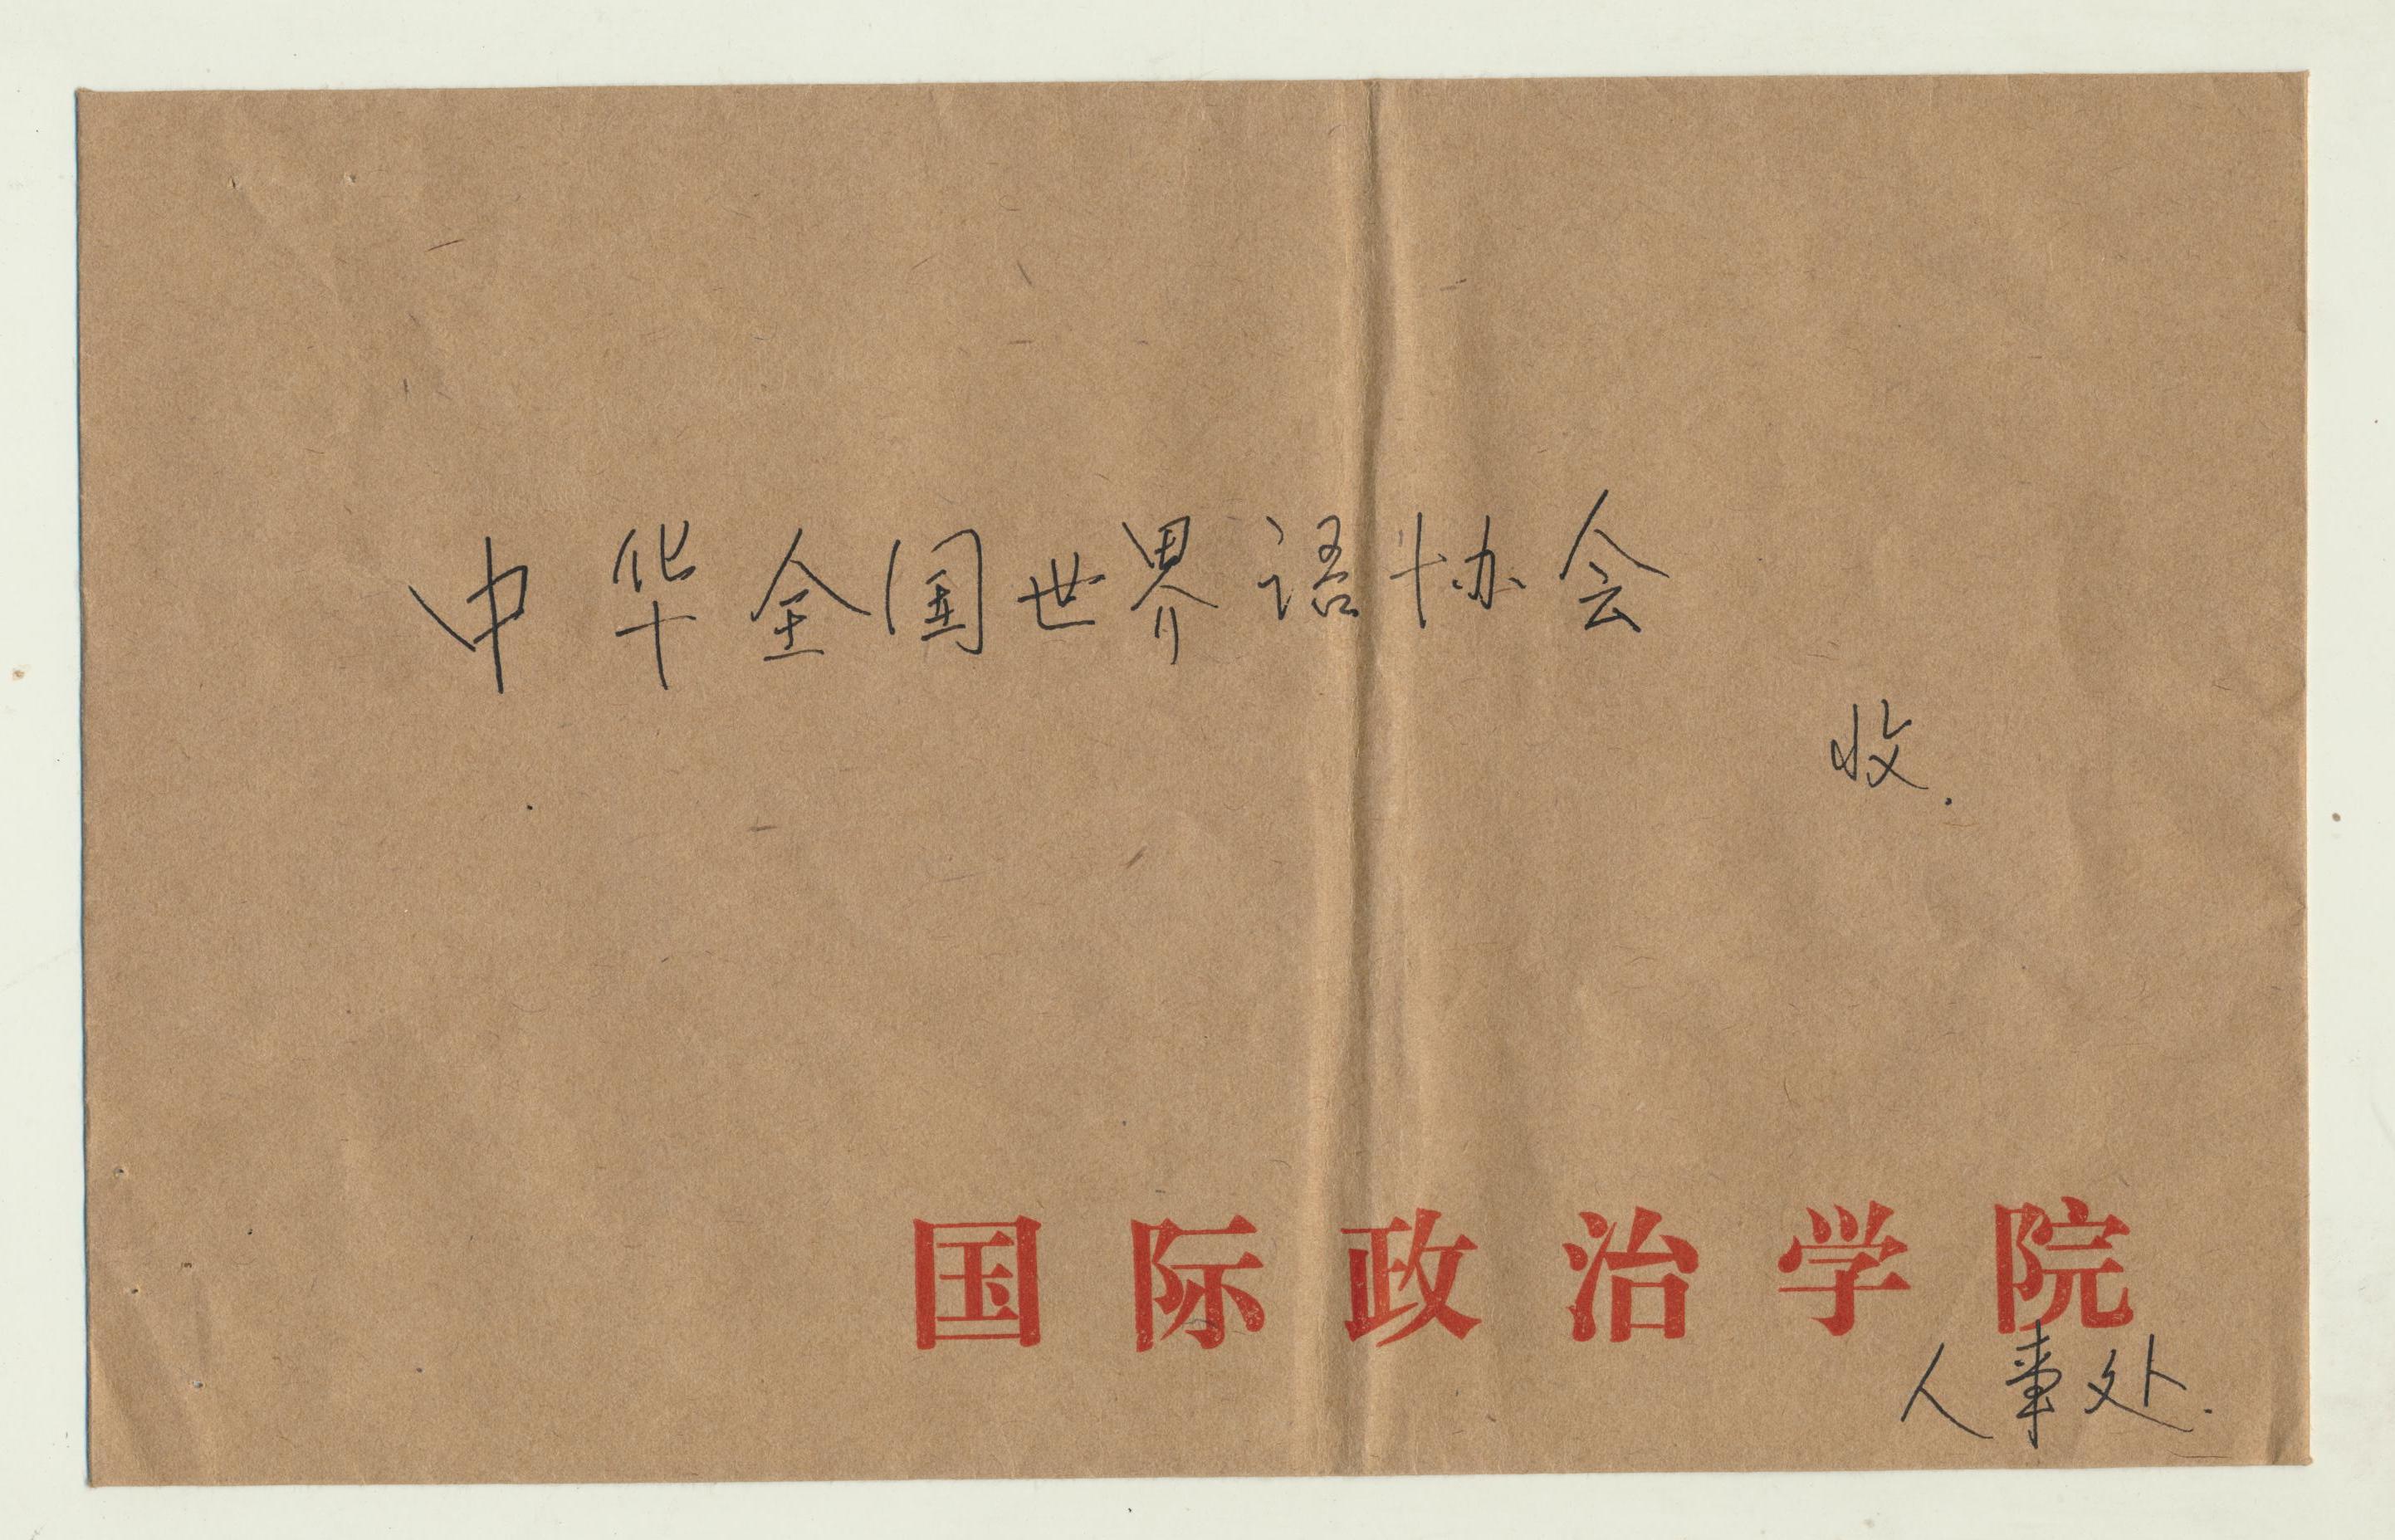 中华全国世界语协会
收.
国际政治学院
人事处.